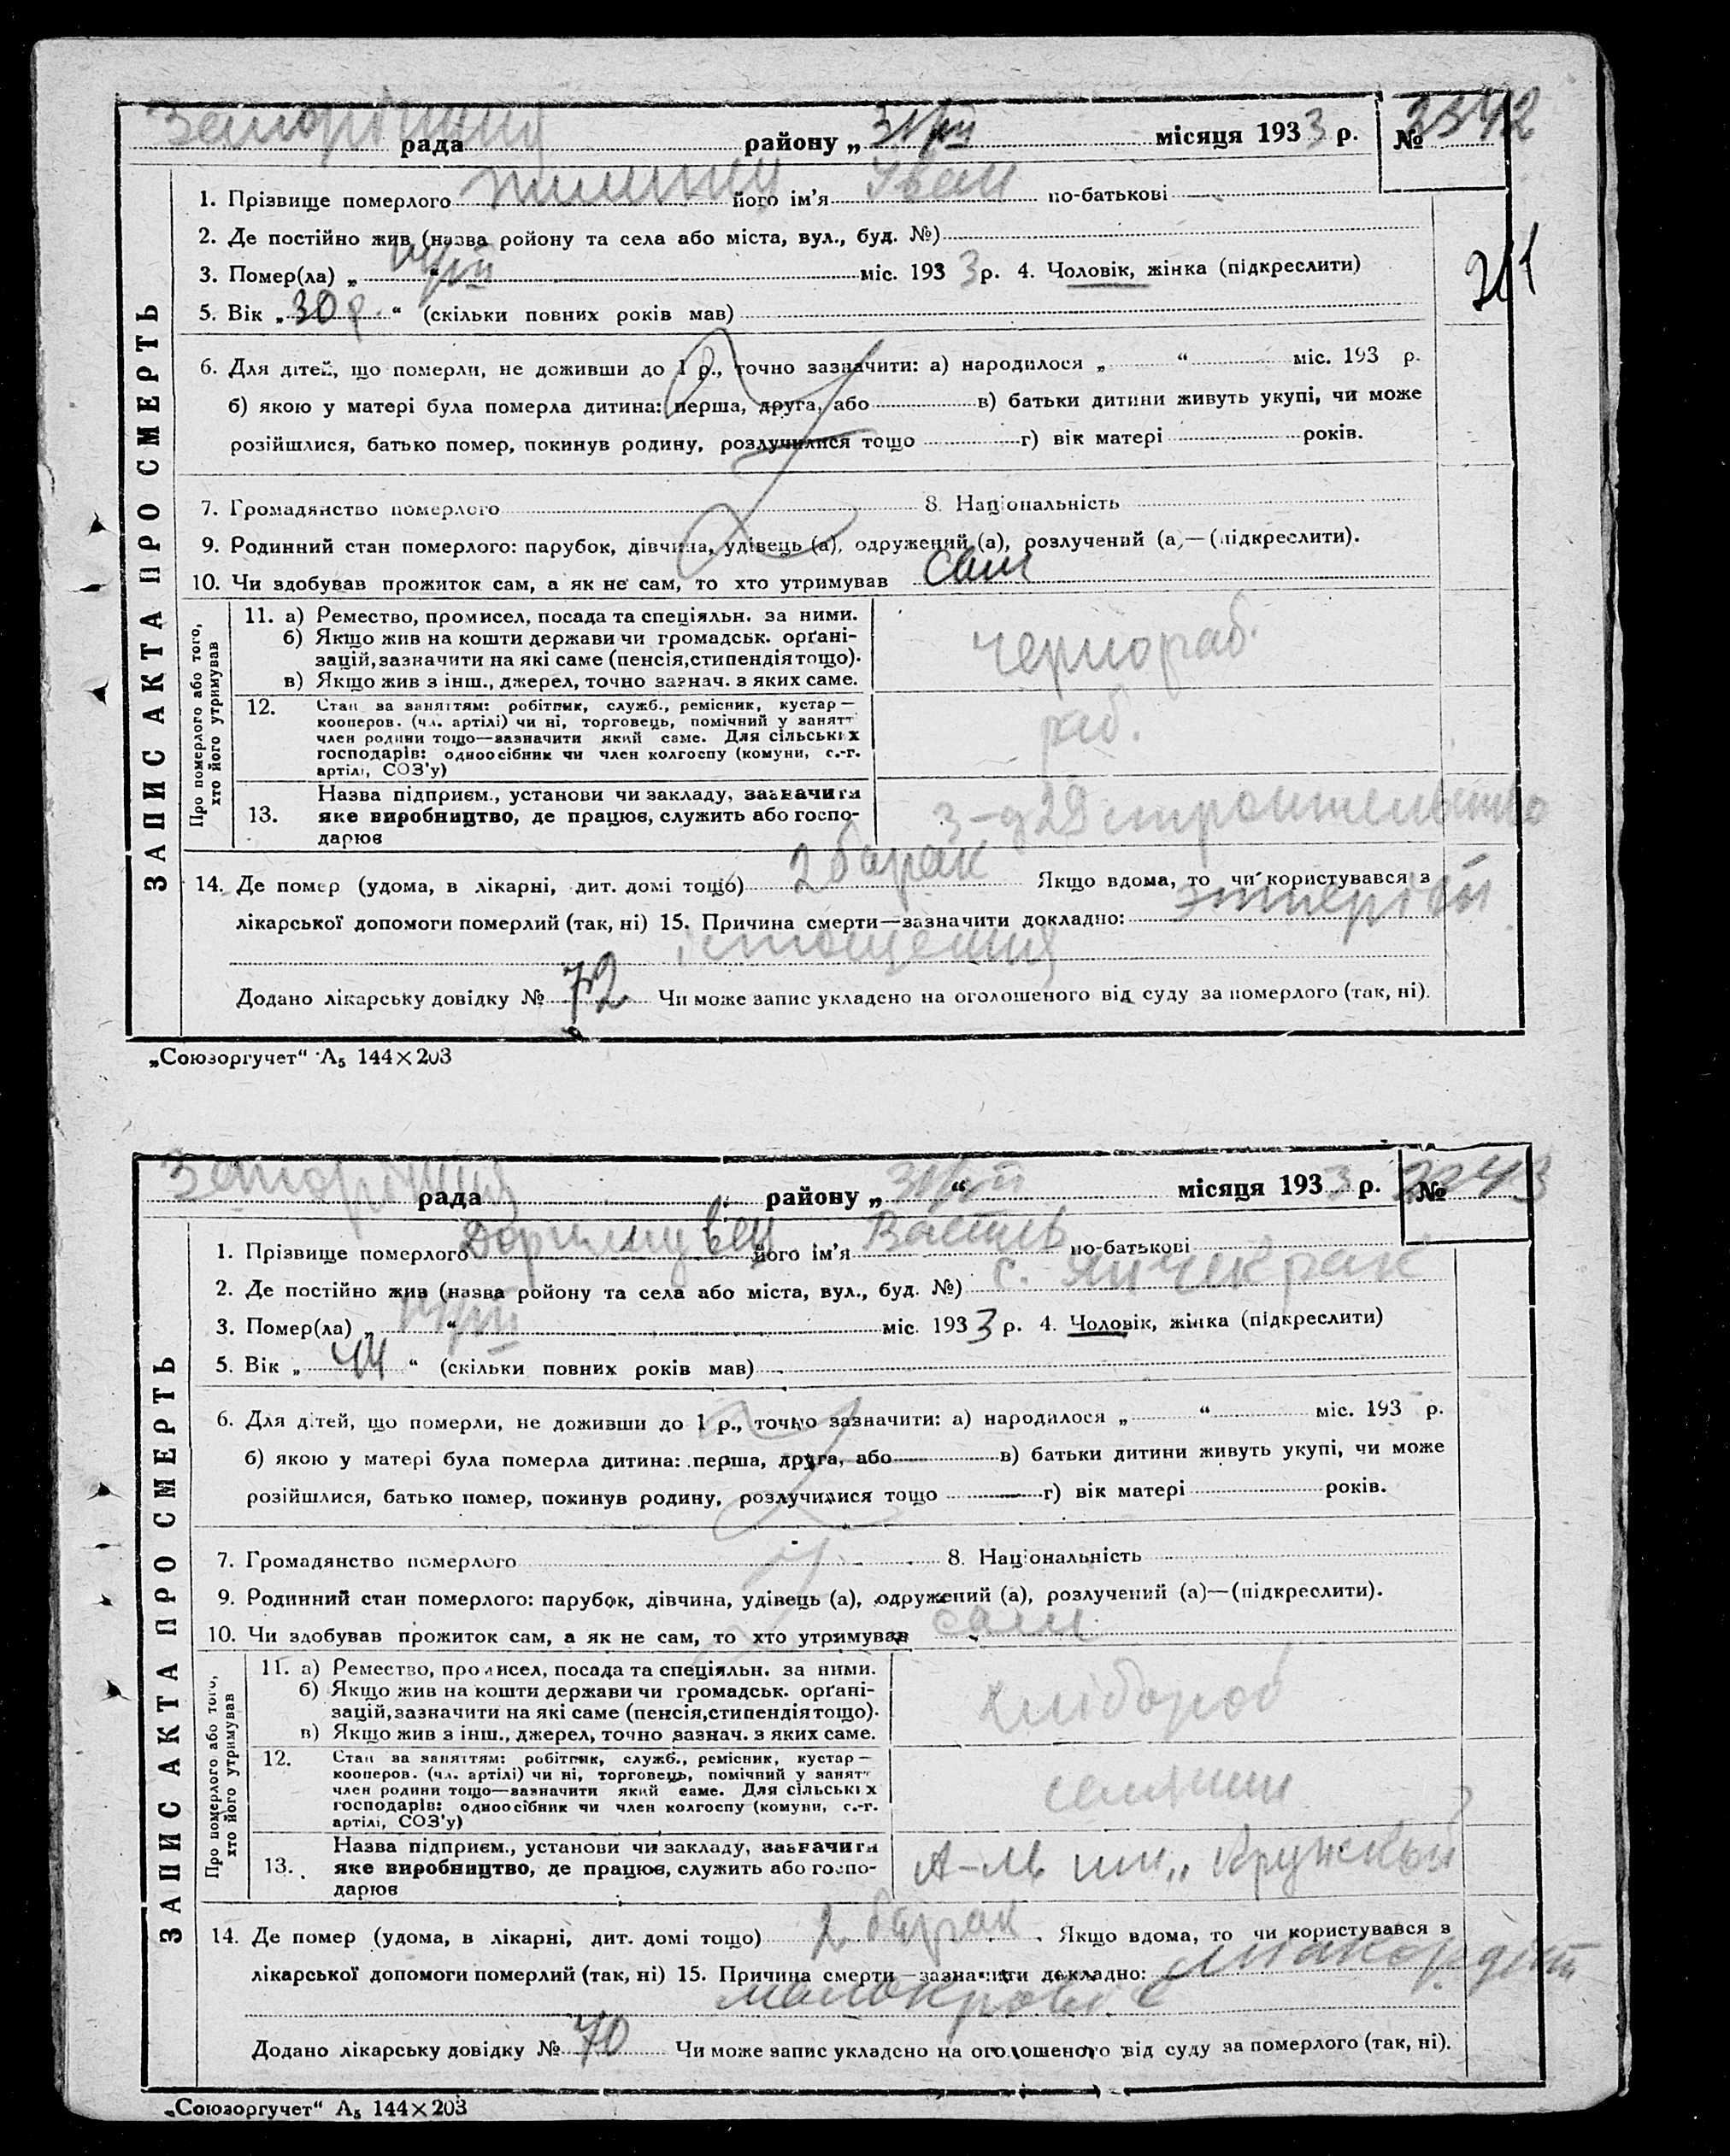 рада району „ місяця 1933 р. №
1. Прізвище померлого його ім'я Іван по-батькові
2. Де постійно жив (назва ройону та села або міста, вул., буд. №)
3. Помер(ла) „ “ міс. 193 3 р. 4. Чоловік, жінка (підкреслити)
5. Вік „ 30 р. “ (скільки повних років мав)
211
6. Для дітей, що померли, не доживши до 1 р., точно зазначити: а) народилося „ “ міс. 193 р.
б) якою у матері була померла дитина: перша, друга, або в) батьки дитини живуть укупі, чи може
розійшлися, батько помер, покинув родину, розлучилися тощо г) вік матері років.
7. Громадянство померлого 8. Національність
9. Родинний стан померлого: парубок, дівчина, удівець (а), одружений (а), розлучений (а)—(підкреслити).
10. Чи здобував прожиток сам, а як не сам, то хто утримував сам
ЗАПИС АКТА ПРО СМЕРТЬ
Про померлого або того, хто його утримував
11. а) Ремество, промисел, посада та спеціяльн. за ними.
б) Якщо жив на кошти держави чи громадськ. орґані-
зацій, зазначити на які саме (пенсія, стипендія тощо).
в) Якщо жив з інш., джерел, точно зазнач. з яких саме.
чернораб.
12. Стан за заняттям: робітник, служб., ремісник, кустар—
кооперов. (чл. артілі) чи ні, торговець, помічний у занятт
член родини тощо—зазначити який саме. Для сільських
господарів: одноосібник чи член колгоспу (комуни, с.-г.
артілі, СОЗ'у)
раб.
Назва підприєм., установи чи закладу, зазначити
13. яке виробництво, де працює, служить або госпо-
дарює
з-д 29 строительство
14. Де помер (удома, в лікарні, дит. домі тощо) 2 барак Якщо вдома, то чи користувався з
лікарської допомоги померлий (так, ні) 15. Причина смерти—зазначити докладно:
істощения
Додано лікарську довідку № 72 Чи може запис укладено на оголошеного від суду за померлого (так, ні).
„Союзоргучет“ А₅ 144×203
рада району „ “ місяця 1933 р. №
1. Прізвище померлого його ім'я Василь по-батькові
2. Де постійно жив (назва ройону та села або міста, вул., буд. №) с. Янчекрак
3. Помер(ла) „ “ міс. 193 3 р. 4. Чоловік, жінка (підкреслити)
5. Вік „ 44 “ (скільки повних років мав)
6. Для дітей, що померли, не доживши до 1 р., точно зазначити: а) народилося „ “ міс. 193 р.
б) якою у матері була померла дитина: перша, друга, або в) батьки дитини живуть укупі, чи може
розійшлися, батько помер, покинув родину, розлучилися тощо г) вік матері років.
7. Громадянство померлого 8. Національність
9. Родинний стан померлого: парубок, дівчина, удівець (а), одружений (а), розлучений (а)—(підкреслити).
10. Чи здобував прожиток сам, а як не сам, то хто утримував сам
ЗАПИС АКТА ПРО СМЕРТЬ
Про померлого або того, хто його утримував
11. а) Ремество, промисел, посада та спеціяльн. за ними.
б) Якщо жив на кошти держави чи громадськ. орґані-
зацій, зазначити на які саме (пенсія, стипендія тощо).
в) Якщо жив з інш., джерел, точно зазнач. з яких саме.
хлібороб
12. Стан за заняттям: робітник, служб., ремісник, кустар—
кооперов. (чл. артілі) чи ні, торговець, помічний у занятт
член родини тощо—зазначити який саме. Для сільських
господарів: одноосібник чи член колгоспу (комуни, с.-г.
артілі, СОЗ'у)
селянин
Назва підприєм., установи чи закладу, зазначити
13. яке виробництво, де працює, служить або госпо-
дарює
14. Де помер (удома, в лікарні, дит. домі тощо) 2 барак Якщо вдома, то чи користувався з
лікарської допомоги померлий (так, ні) 15. Причина смерти—зазначити докладно:
малокровіє
Додано лікарську довідку № 70 Чи може запис укладено на оголошеного від суду за померлого (так, ні).
„Союзоргучет“ А₅ 144×203